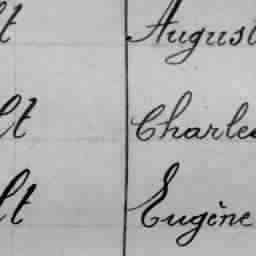 lt August
lt Charles
lt Eugène